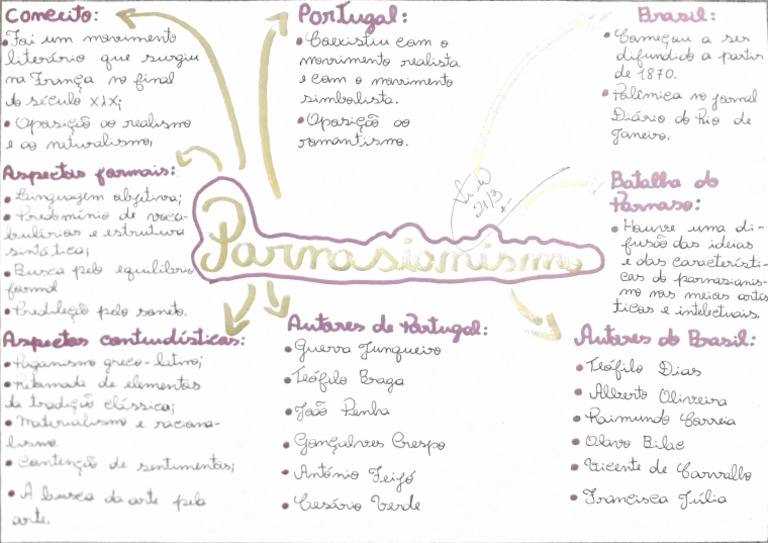 Conceito:
• Foi um movimento
literário que surgiu
na França no final
do século XIX;
• Oposição ao realismo
e ao naturalismo.
Portugal:
• Coexistiu com o
movimento realista
e com o movimento
simbolista.
• Oposição ao
romantismo.
Brasil:
• Começou a ser
difundido a partir
de 1870.
• Polêmica no jornal
Diário do Rio de
Janeiro.
Aspectos formais:
• Linguagem objetiva;
• Predomínio de voca-
bulários e estrutura
sintática;
• Busca pelo equilíbrio
formal
• Predileção pelo soneto.
Parnasianismo
21/3
Batalha do
Parnaso:
• Houve uma di-
fusão das ideias
e das característi-
cas do parnasianis-
mo nos meios artís
ticos e intelectuais.
Aspectos conteudísticos:
• Paganismo greco-latino;
• Retomada de elementos
da tradição clássica;
• Materialismo e raciona-
lismo.
• Contenção de sentimentos;
• A busca da arte pela
arte.
Autores de Portugal:
• Guerra Junqueiro
• Teófilo Braga
• João Penha
• Gonçalves Crespo
• António Feijó
• Cesário Verde
Autores do Brasil:
• Teófilo Dias
• Alberto Oliveira
• Raimundo Correia
• Olavo Bilac
• Vicente de Carvalho
• Francisca Júlia